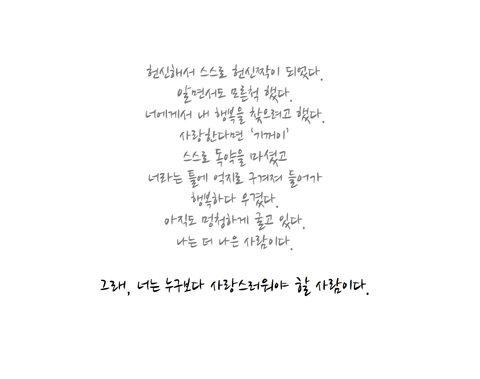 헌신해서 스스로 헌신짝이 되었다.
알면서도 모른척 했다.
너에게서 내 행복을 찾으려고 했다.
사랑한다면 '기꺼이'
스스로 독약을 마셨고
너라는 틀에 억지로 구겨져 들어가
행복하다 우겼다.
아직도 멍청하게 굴고 있다.
나는 더 나은 사람이다.
그래, 너는 누구보다 사랑스러워야 할 사람이다.